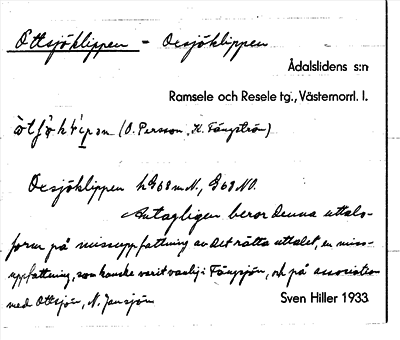 Ottsjöklippen - Ocsjöklippen
Ådalslidens s:n
Ramsele och Resele tg., Västernorrl. l.
(O. Persson, K. Tängström)
Ocsjöklippen h G8 m N., G8 NO.
Antagligen beror denna uttals-
form på missuppfattning av det rätta uttalet, en miss-
uppfattning, som kanske varit vanlig i Tängsjön, och på association
med Ottsjön, N. Jansjön
Sven Hiller 1933